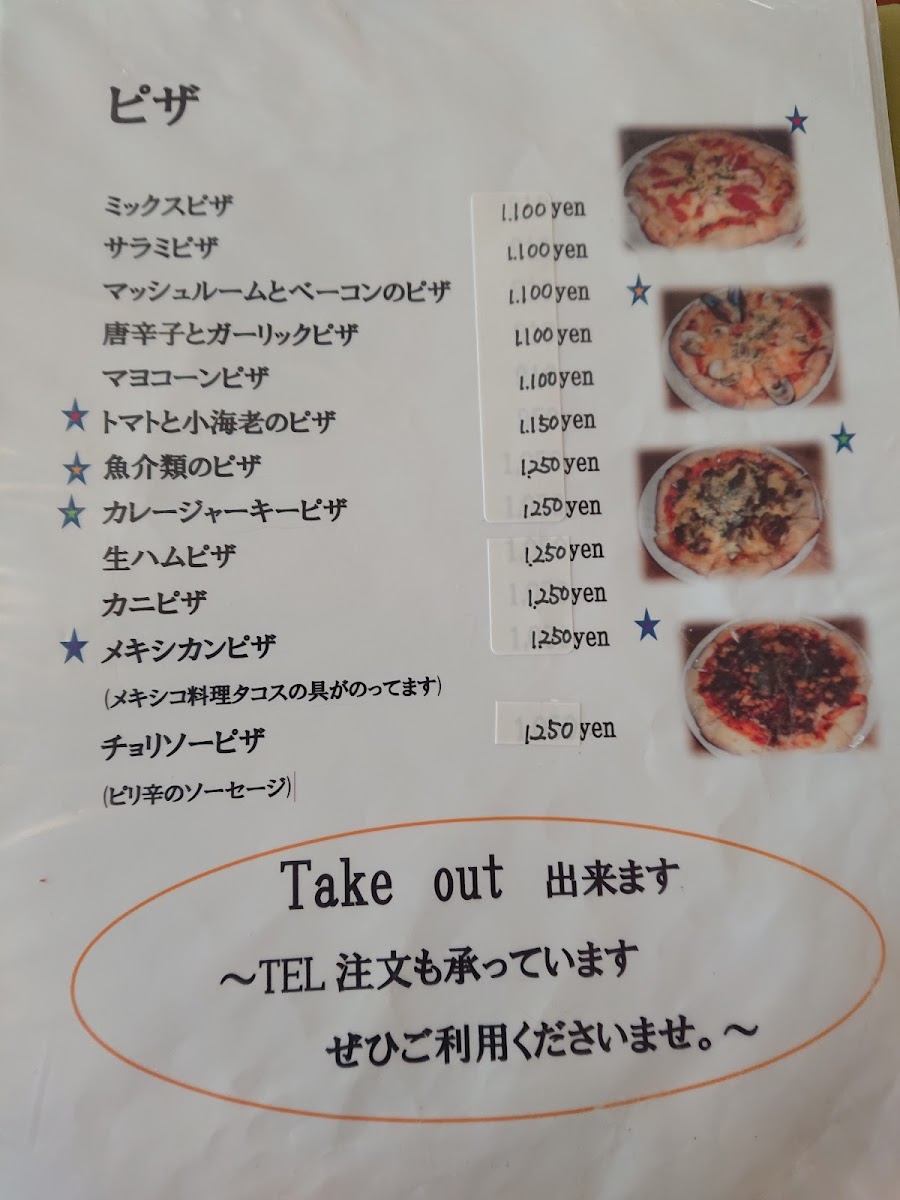 ピザ
ミックスピザ 1.100yen
サラミピザ 1.100yen
マッシュルームとベーコンのピザ 1.100yen
唐辛子とガーリックピザ 1.100yen
マヨコーンピザ 1.100yen
トマトと小海老のピザ 1.150yen
魚介類のピザ 1,250yen
カレージャーキーピザ 1250yen
生ハムピザ 1,250yen
カニピザ 1,250yen
メキシカンピザ 1,250yen
(メキシコ料理タコスの具がのってます)
チョリソーピザ 1,250yen
(ピリ辛のソーセージ)
Take out 出来ます
～TEL 注文も承っています
ぜひご利用くださいませ。～